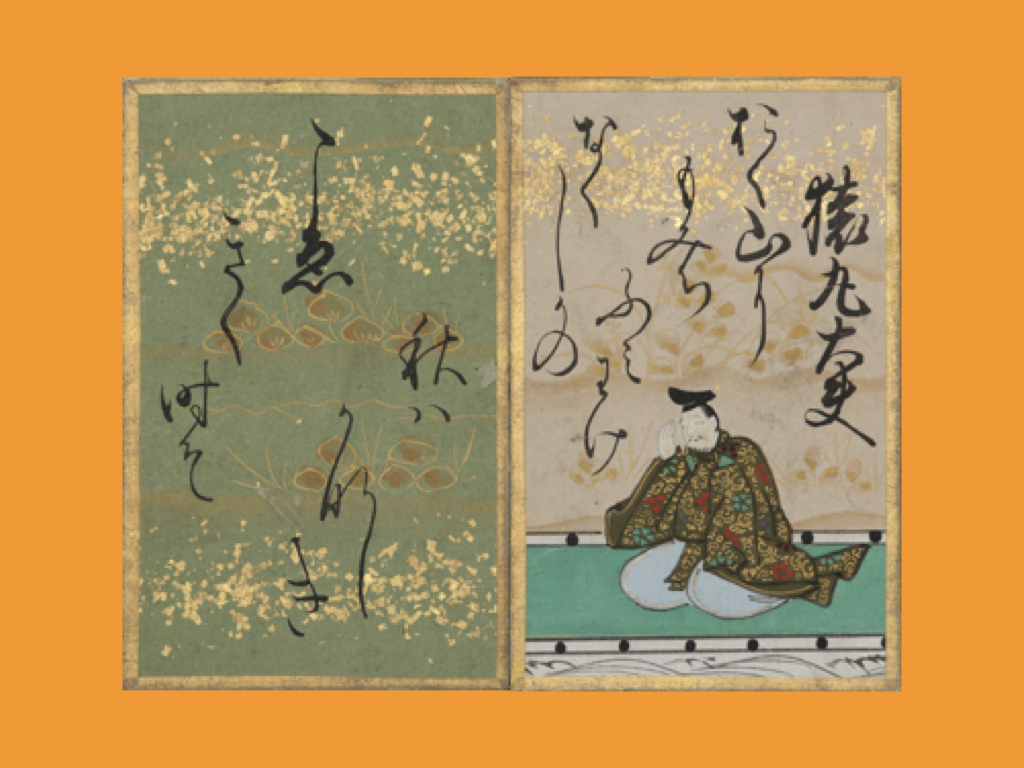 猿丸大夫
おく山に
もみち
ふミわけ
なくしかの
こゑ
きく
時そ
秋ハ
かなし
き